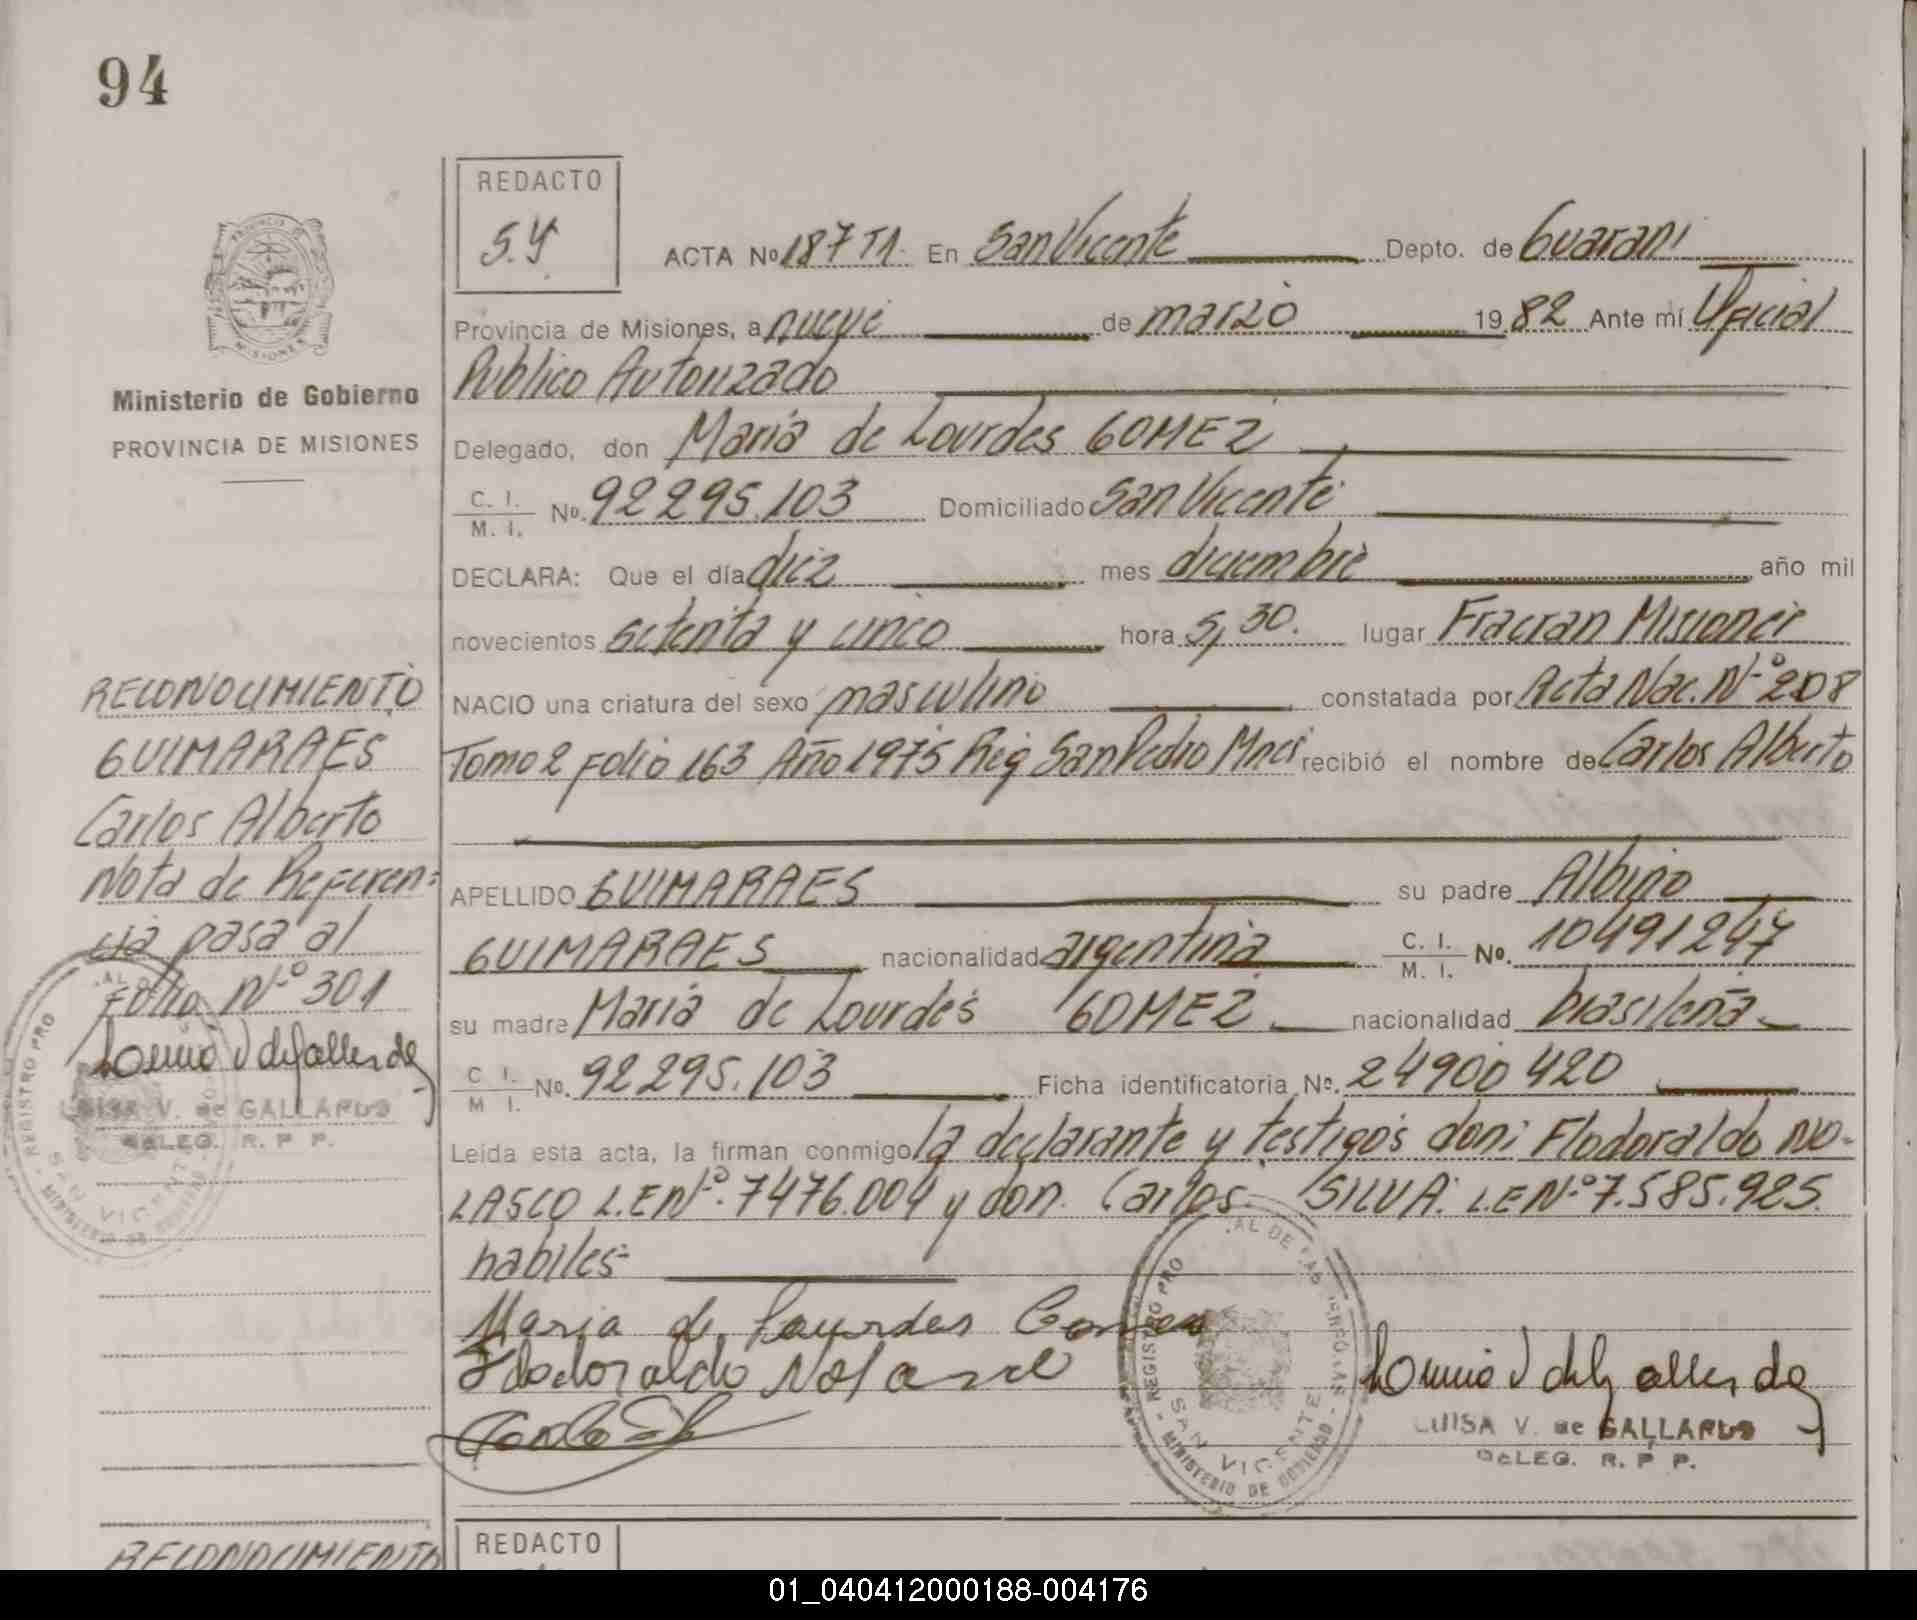 94
REDACTO
S.Y
ACTA Nº 187 T1. En San Vicente Depto. de Guarani
Provincia de Misiones, a nueve de marzo 1982 Ante mí Oficial
Publico Autorizado
Ministerio de Gobierno
PROVINCIA DE MISIONES
Delegado, don Maria de Lourdes GOMEZ
C. I. M. I. Nº. 92 295.103 Domiciliado San Vicente
DECLARA: Que el día diez mes diciembre año mil
novecientos setenta y cinco hora 5,30. lugar Fracran Misiones
NACIO una criatura del sexo masculino constatada por Acta Nac. Nº 208
Tomo 2 folio 163 Año 1975 Reg San Pedro Mnes recibió el nombre de Carlos Alberto
APELLIDO GUIMARAES su padre Albino
GUIMARAES nacionalidad argentina C. I. M. I. Nº. 10491247
su madre Maria de Lourdes GOMEZ nacionalidad brasileña
C I. M I. Nº. 92 295.103 Ficha identificatoria Nº. 24900420
Leída esta acta, la firman conmigo la declarante y testigos don: Flodoraldo NO-
LASCO L.E Nº. 7476.004 y don. Carlos SILVA. L.E Nº 7.585.925.
habiles-
Maria de Lourdes Gomes
Flodoraldo Nolasco
LUISA V. de GALLARDO
DELEG. R. P P.
REGISTRO PRO AL DE LAS PERSONAS
SAN VICENTE
MINISTERIO DE GOBIERNO
RECONOCIMIENTO
GUIMARAES
Carlos Alberto
Nota de Referen=
cia pasa al
Folio Nº 301
LUISA V. de GALLARDO
DELEG. R. P P.
REGISTRO PRO
SAN VICENTE
MINISTERIO DE GOBIERNO
RECONOCIMIENTO
REDACTO
01_040412000188-004176